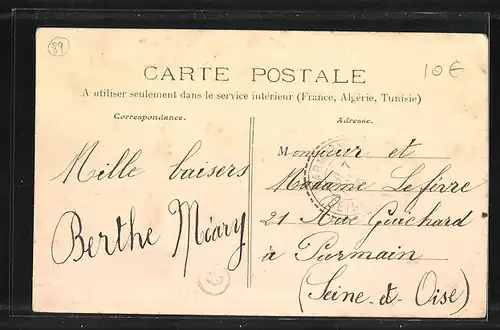 89
CARTE POSTALE
10€
A utiliser seulement dans le service intérieur (France, Algérie, Tunisie)
Correspondance.
Adresse.
Mille baisers
Berthe Méary
Monsieur et
Madame Lefèvre
21 Rue Guichard
à Parmain
(Seine-et-Oise)
C